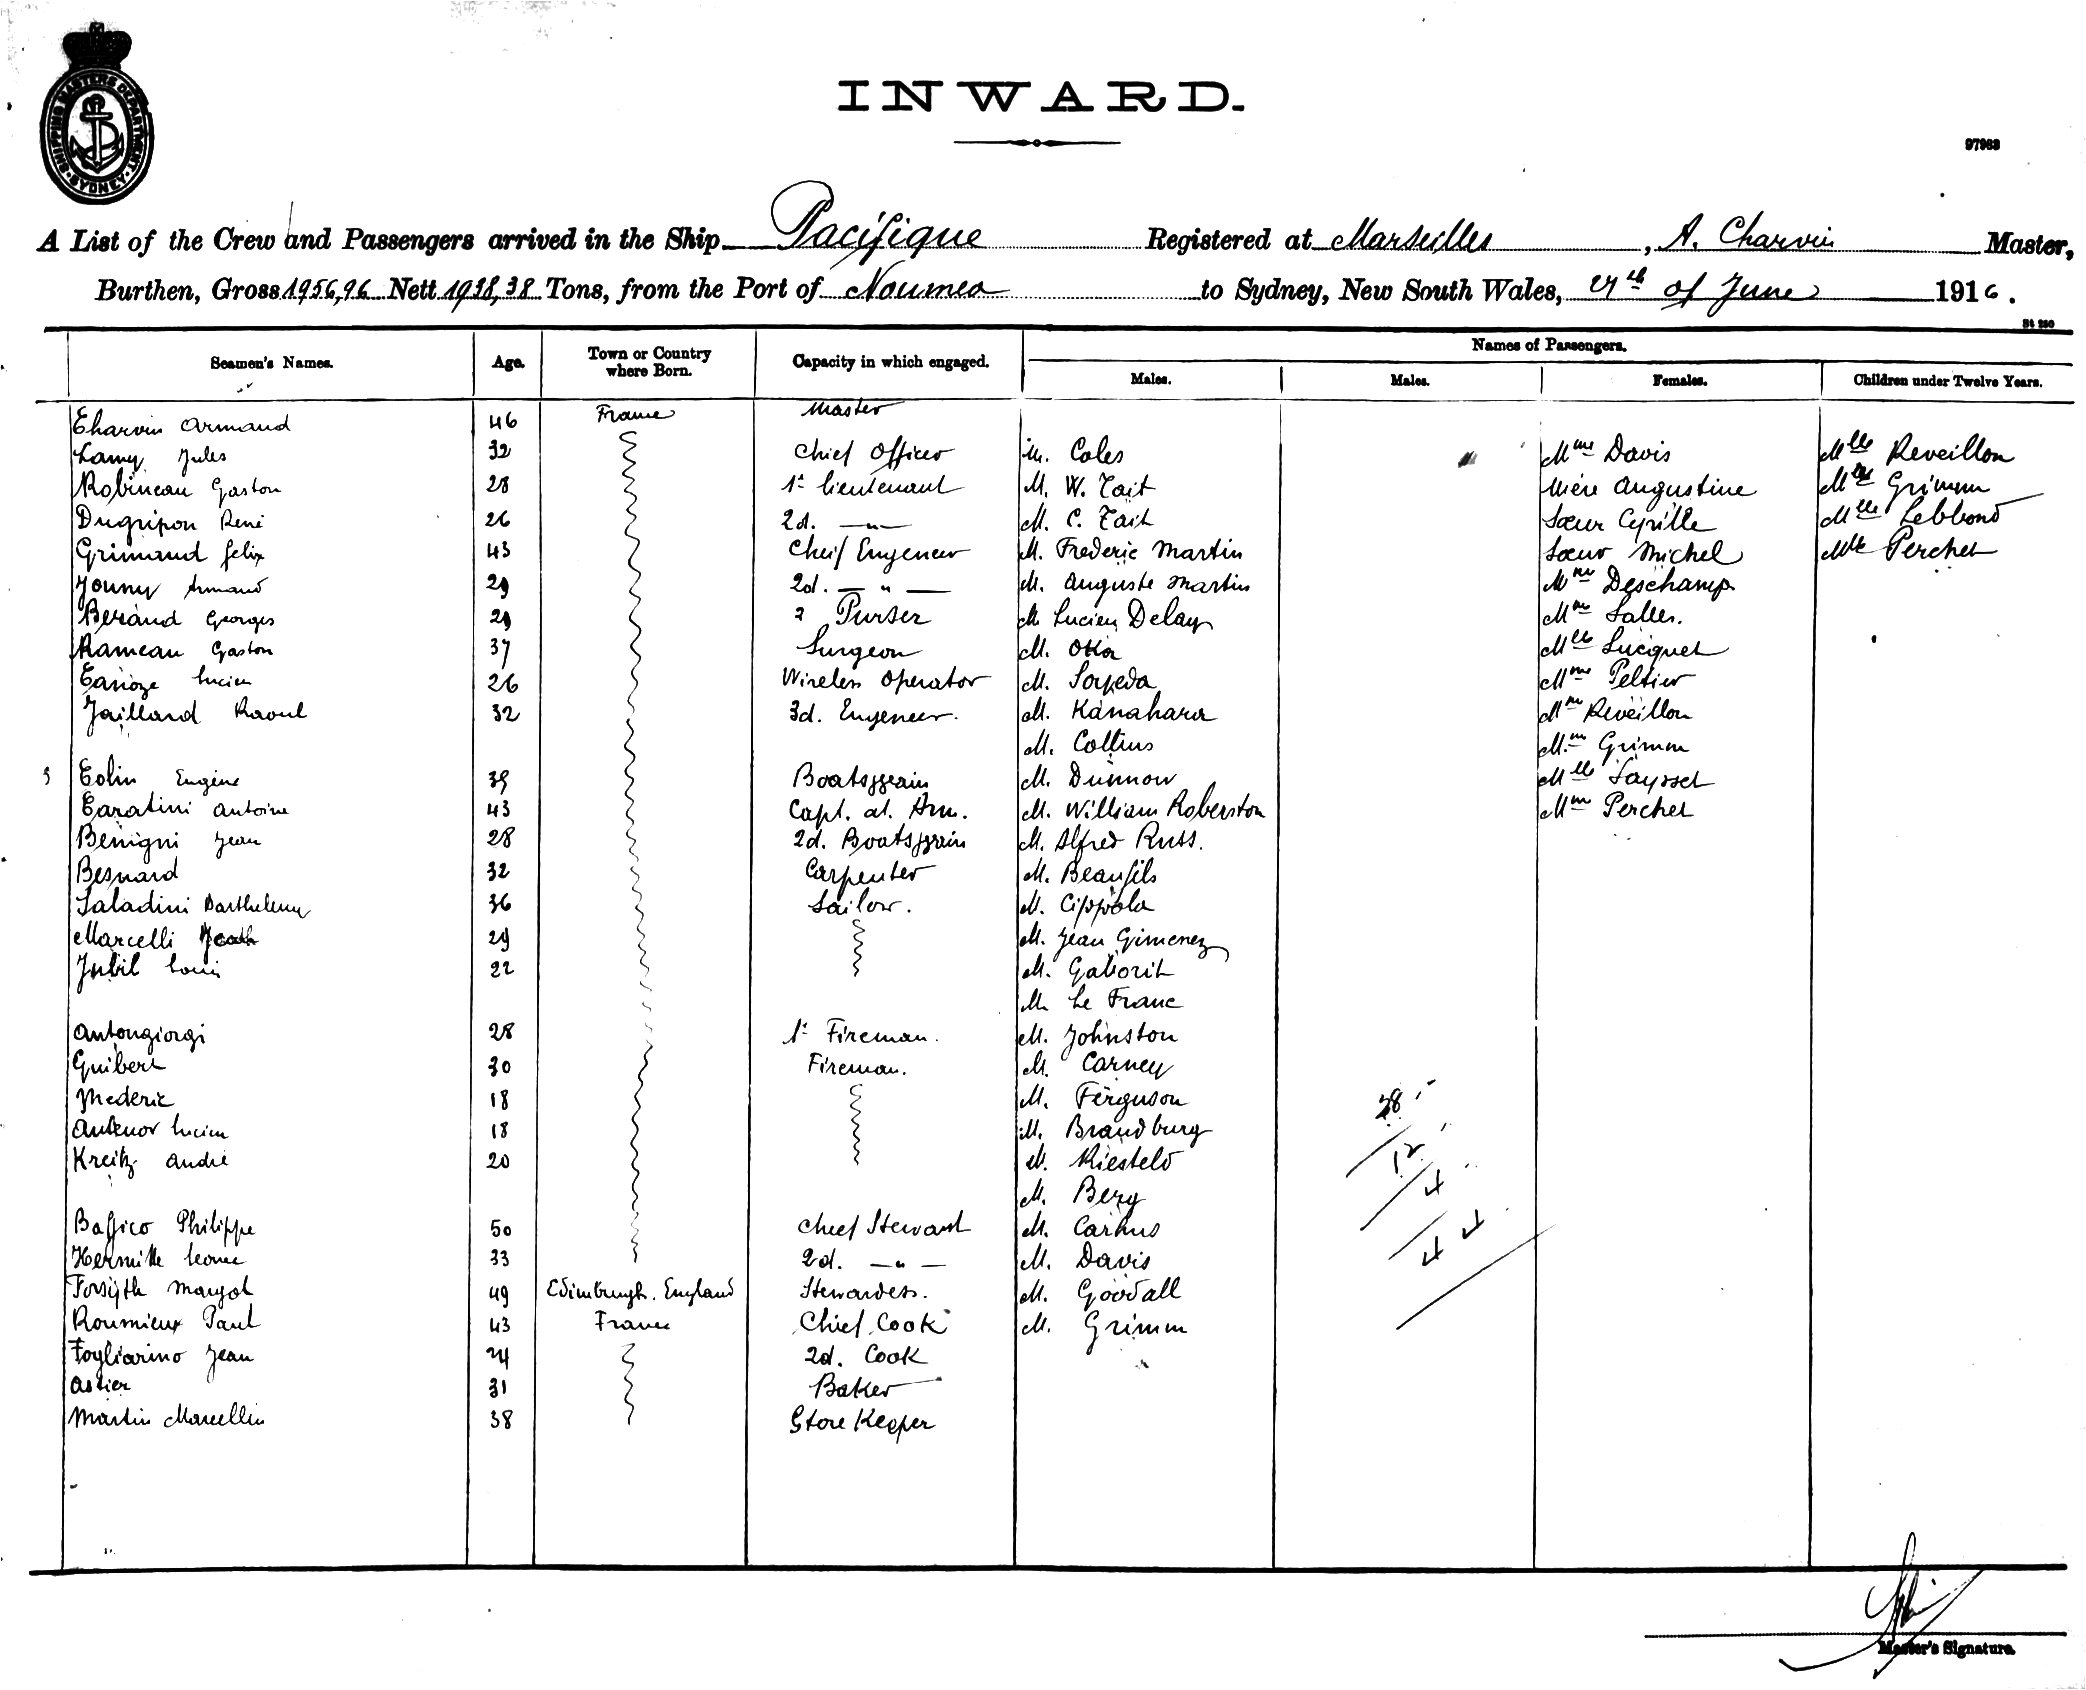 SHIPPING MASTERS DEPARTMENT SYDNEY
INWARD.
97963
A List of the Crew and Passengers arrived in the Ship Pacifique Registered at Marseilles, A. Charvin Master,
Burthen, Gross 1956,96 Nett 1938,38 Tons, from the Port of Noumea to Sydney, New South Wales, of June 1916.
Seamen's Names. Age. Town or Country where Born. Capacity in which engaged. Names of Passengers.
Males. Males. Females. Children under Twelve Years.
Charvin Armand 46 France Master
Lamy Jules 32 Chief Officer M. Coles Mme Davis Mlle Reveillon
Robineau Gaston 28 1r lieutenant M. W. Tait Mère Augustine Mlle Grimm
Dugripon René 26 2d. —"— M. C. Tait Sœur Cyrille Mlle Lebbond
Grimaud Felix 43 Cheif Engeneer M. Frederic Martin Sœur Michel Mlle Percher
Jouny Armand 29 2d. — " — M. Auguste Martin Mme Deschamp
Berand Georges 29 Purser M Lucien Delay Mme Salles.
Rameau Gaston 37 Surgeon M. Oka Mlle Lucquet
Lucien 26 Wireless Operator M. Soyeda Mme Peltier
Jaillard Raoul 32 3d. Engeneer. M. Kanahara Mme Reveillon
M. Collins Mme Grimm
Colin Eugène 39 Boatsggrain M. Dunnow Mlle Saysset
Caratini Antoine 43 Capt. at. Arm. M. William Roberston Mme Percher
Benigni Jean 28 2d. Boatsggrain M. Alfred Russ.
Besnard 32 Carpenter M. Beaufils
Saladini Barthelemy 36 Sailor. M. Cippola
Marcelli 29 M. Jean Gimenez
Jubil Louis 22 M. Gaborit
M. Le Franc
Antongiorgi 28 1r Fireman. M. Johnston
Guibert 30 Fireman. M. Carney
Mederic 18 M. Ferguson 28
Antenor Lucien 18 M. Brandburg 12
Kreitz André 20 M. Kiesteld
M. Berg 4
Baffico Philippe 50 Chief Stewart M. Carhus 44
Hermitte Leonce 33 2d. — " — M. Davis
Forsyth Margot 49 Edimburgh. England Stewardess. M. Goodall
Roumieux Paul 43 France Chief Cook M. Grimm
Fogliarino Jean 24 2d. Cook
Astier 31 Baker
Martin Marcellin 38 Store Keeper
Master's Signature.